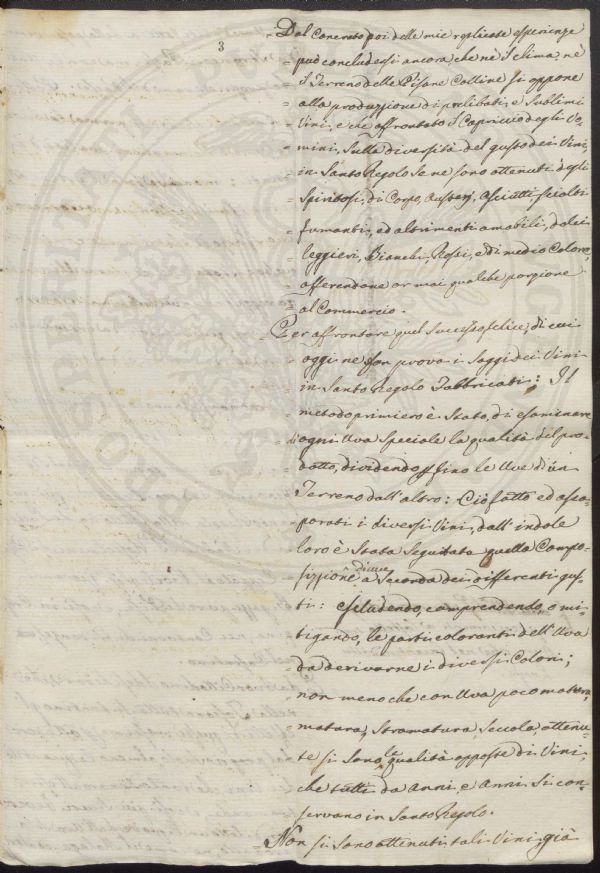 3
Dal Concreto poi delle mie replicate esperienze
può concludersi ancora che nè il clima, nè
il Terreno delle Pisane Colline si oppone
alla produzzione di prelibati, e sublimi
Vini, e che affrontato il Capriccio degli Uo=
mini, sulla diversità del gusto dei Vini,
in Santo Regolo se ne sono ottenuti degli
Spiritosi, di Corpo, Austeri, Asciutti, sciolti
fumanti, ed altrimenti amabili, dolci
leggieri, Bianchi, Rossi, e di medio Colore,
offerendone or mai qualche porzione
al Commercio.
Per affrontare quel successo felice, di cui
oggi ne son prova i saggi dei Vini
in Santo Regolo Fabbricati; Il
metodo primiero è stato, di esaminare
di ogni Uva speciale la qualità del pro=
dotto, dividendo fino le Uve di un
Terreno dall'altro: Ciò fatto ed assa=
porati i diversi Vini, dall'indole
loro è stata seguitata quella Compo=
sizzione d'uve a seconda dei differenti gus=
ti: escludendo, comprendendo, o mi=
tigando, le parti coloranti dell'Uva
da derivarne i diversi Colori;
non meno che con Uva poco matura,
matura, stramatura, e secca, ottenu=
te si sono le qualità opposte di Vini
che tutti da Anni, e Anni si con=
servano in Santo Regolo.
Non si sono ottenuti tali Vini già